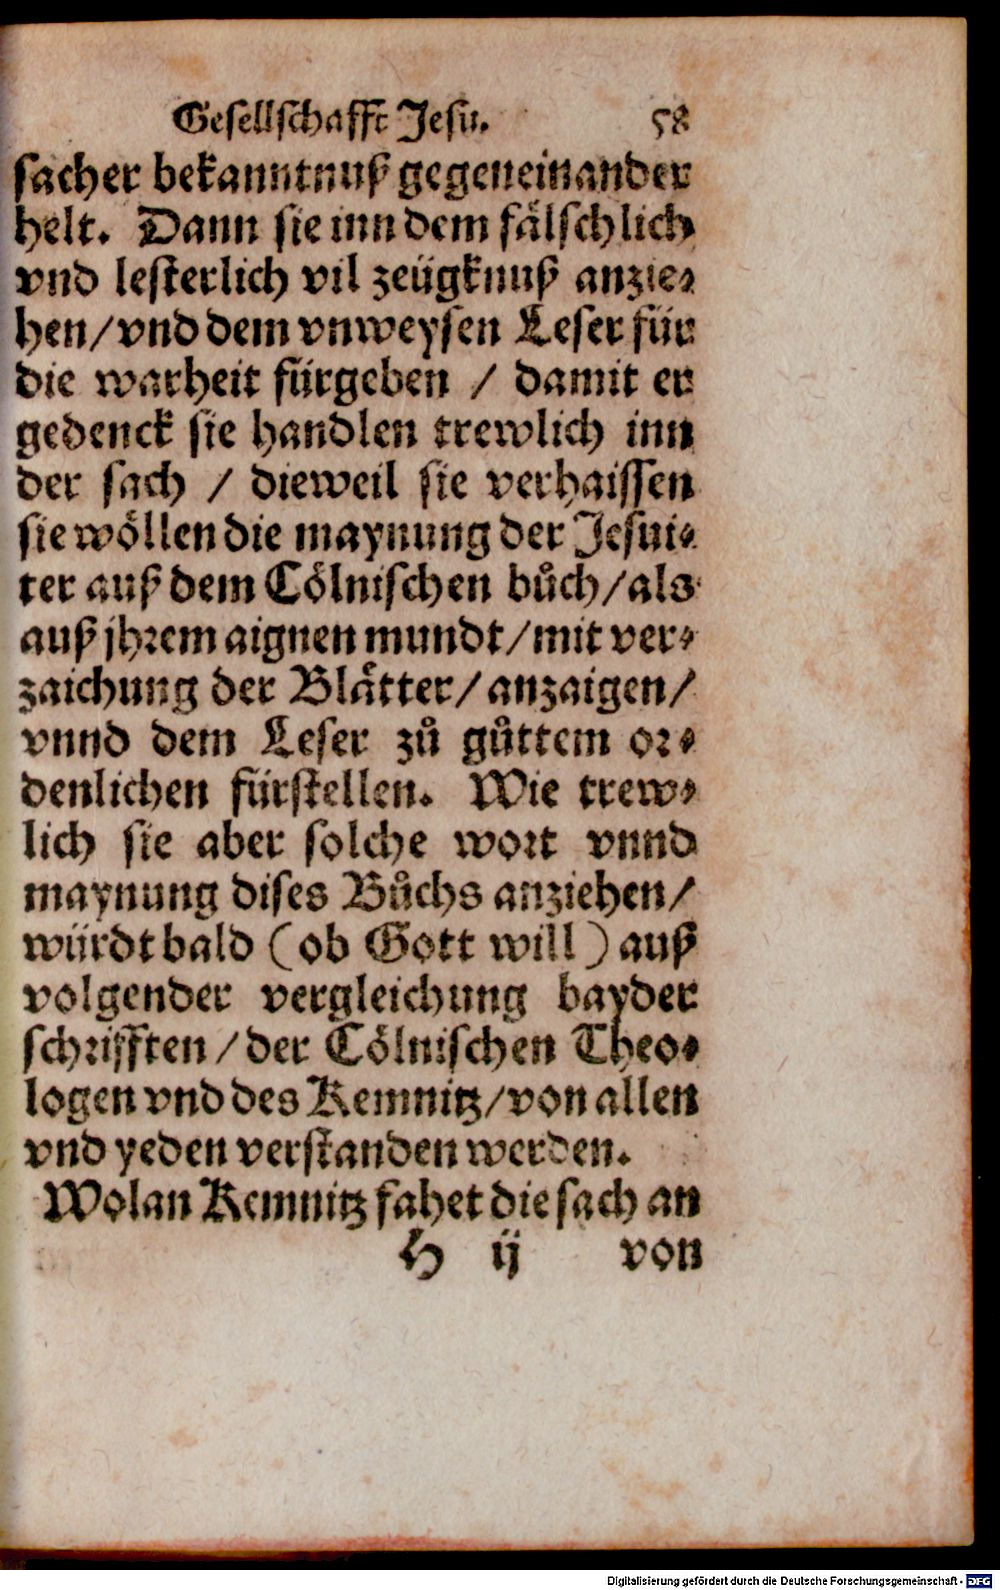 Gesellschafft Jesu. 58
sacher bekanntnuß gegeneinander
helt. Dann sie inn dem fälschlich
vnd lesterlich vil zeügknuß anzie⸗
hen/vnd dem vnweysen Leser für
die warheit fürgeben / damit er
gedenck sie handlen trewlich inn
der sach / dieweil sie verhaissen
sie wöllen die maynung der Jesui⸗
ter auß dem Cölnischen bůch/als
auß jhrem aignen mundt/mit ver⸗
zaichung der Blätter/anzaigen/
vnnd dem Leser zů gůttem or⸗
denlichen fürstellen. Wie trew⸗
lich sie aber solche wort vnnd
maynung dises Bůchs anziehen/
würdt bald (ob Gott will) auß
volgender vergleichung bayder
schrifften/der Cölnischen Theo⸗
logen vnd des Kemnitz/von allen
vnd yeden verstanden werden.
Wolan Kemnitz fahet die sach an
H ij von
Digitalisierung gefördert durch die Deutsche Forschungsgemeinschaft - DFG